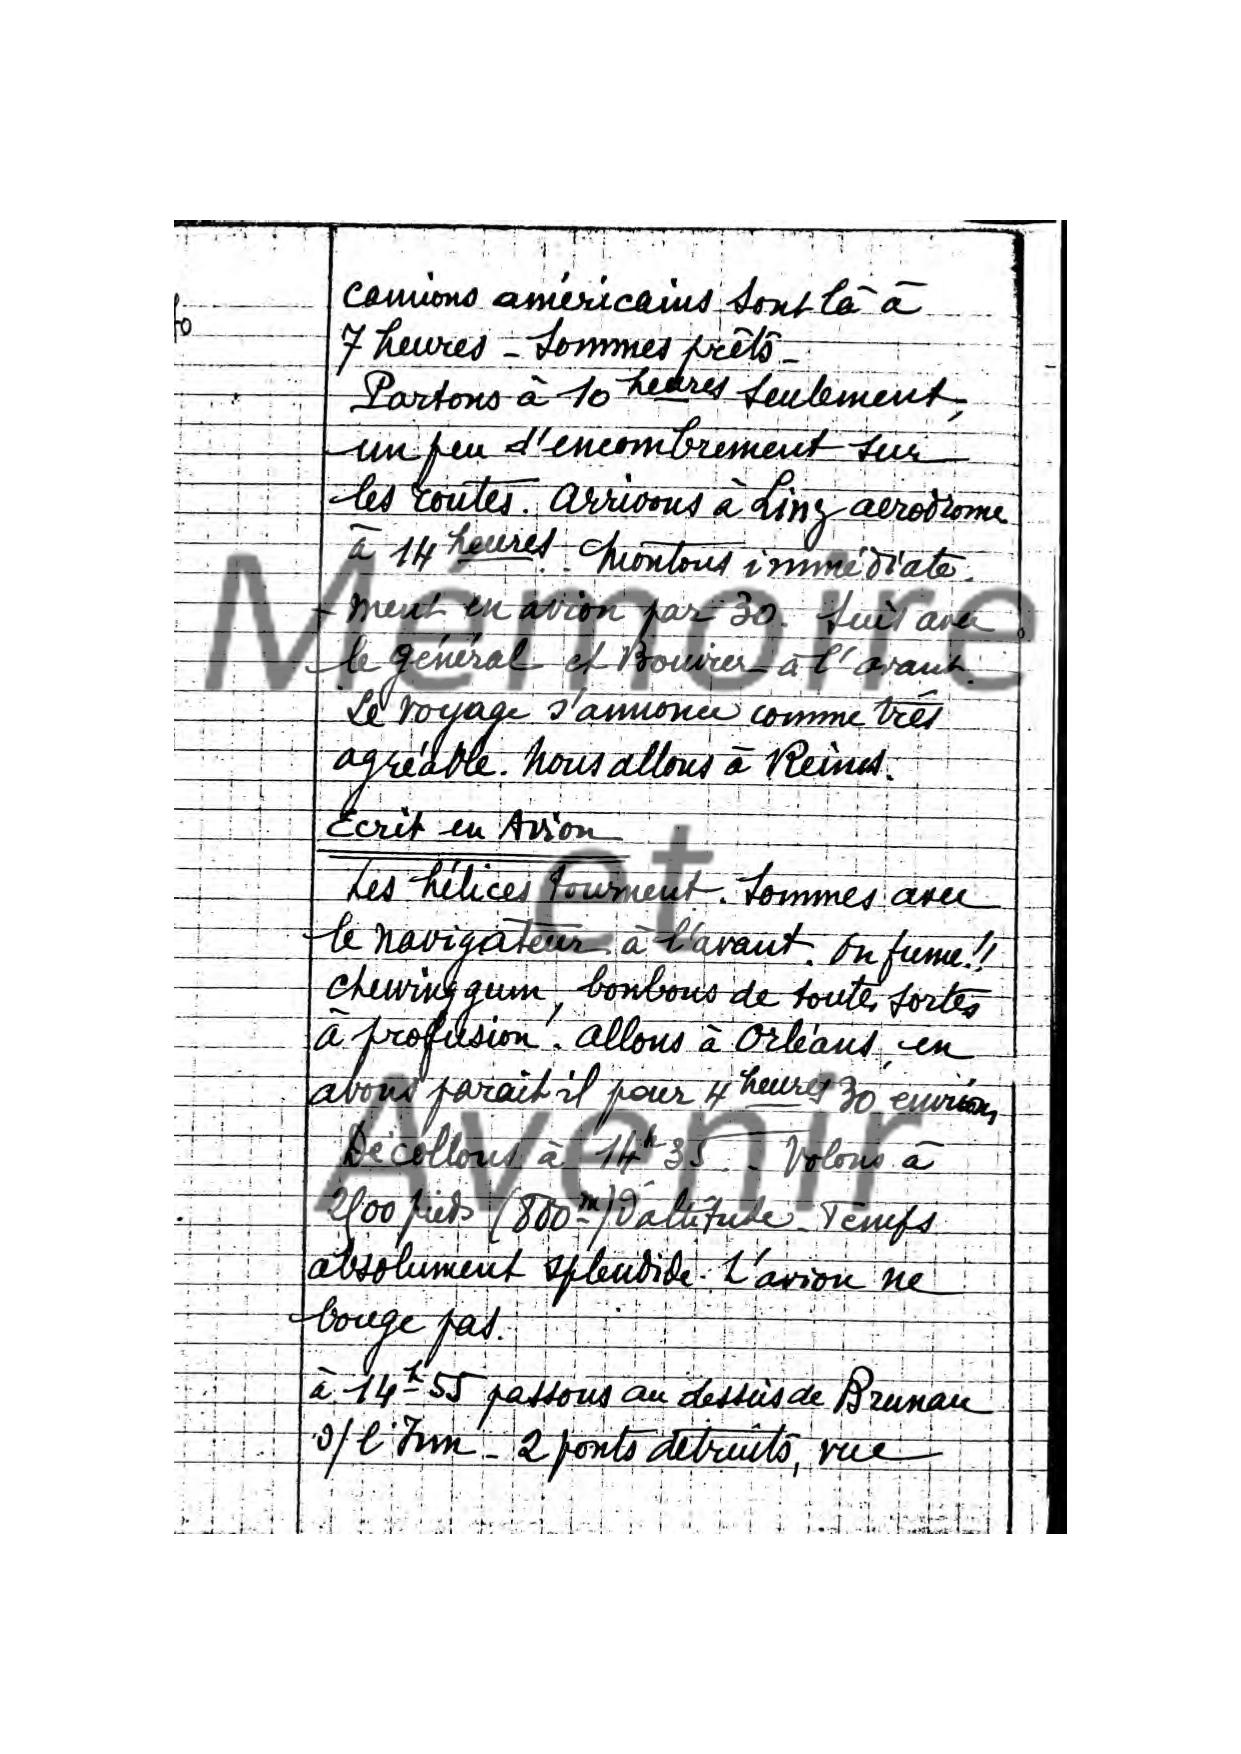 camions américains sont là à
7 heures - Sommes prêts -
Partons à 10 heures seulement,
un peu d'encombrement sur
les routes. Arrivons à Linz aerodrome
à 14 heures. - Montons immédiate-
ment en avion par 30. Suis avec
le général et Bouvier à l'avant.
Le voyage s'annonce comme très
agréable. Nous allons à Reims.
Ecrit en Avion
Les hélices tournent. Sommes avec
le navigateur à l'avant. On fume!!
chewing gum, bonbons de toutes sortes
à profusion. Allons à Orléans, en
avons parait il pour 4 heures 30 environ,
Décollons à 14h 35 - Volons à
pieds (800m) d'altitude - Temps
absolument splendide. L'avion ne
bouge pas.
à 14h 55 passons au dessus de Brunau
s/ l'Inn - 2 ponts détruits, vue
Mémoire
et
Avenir